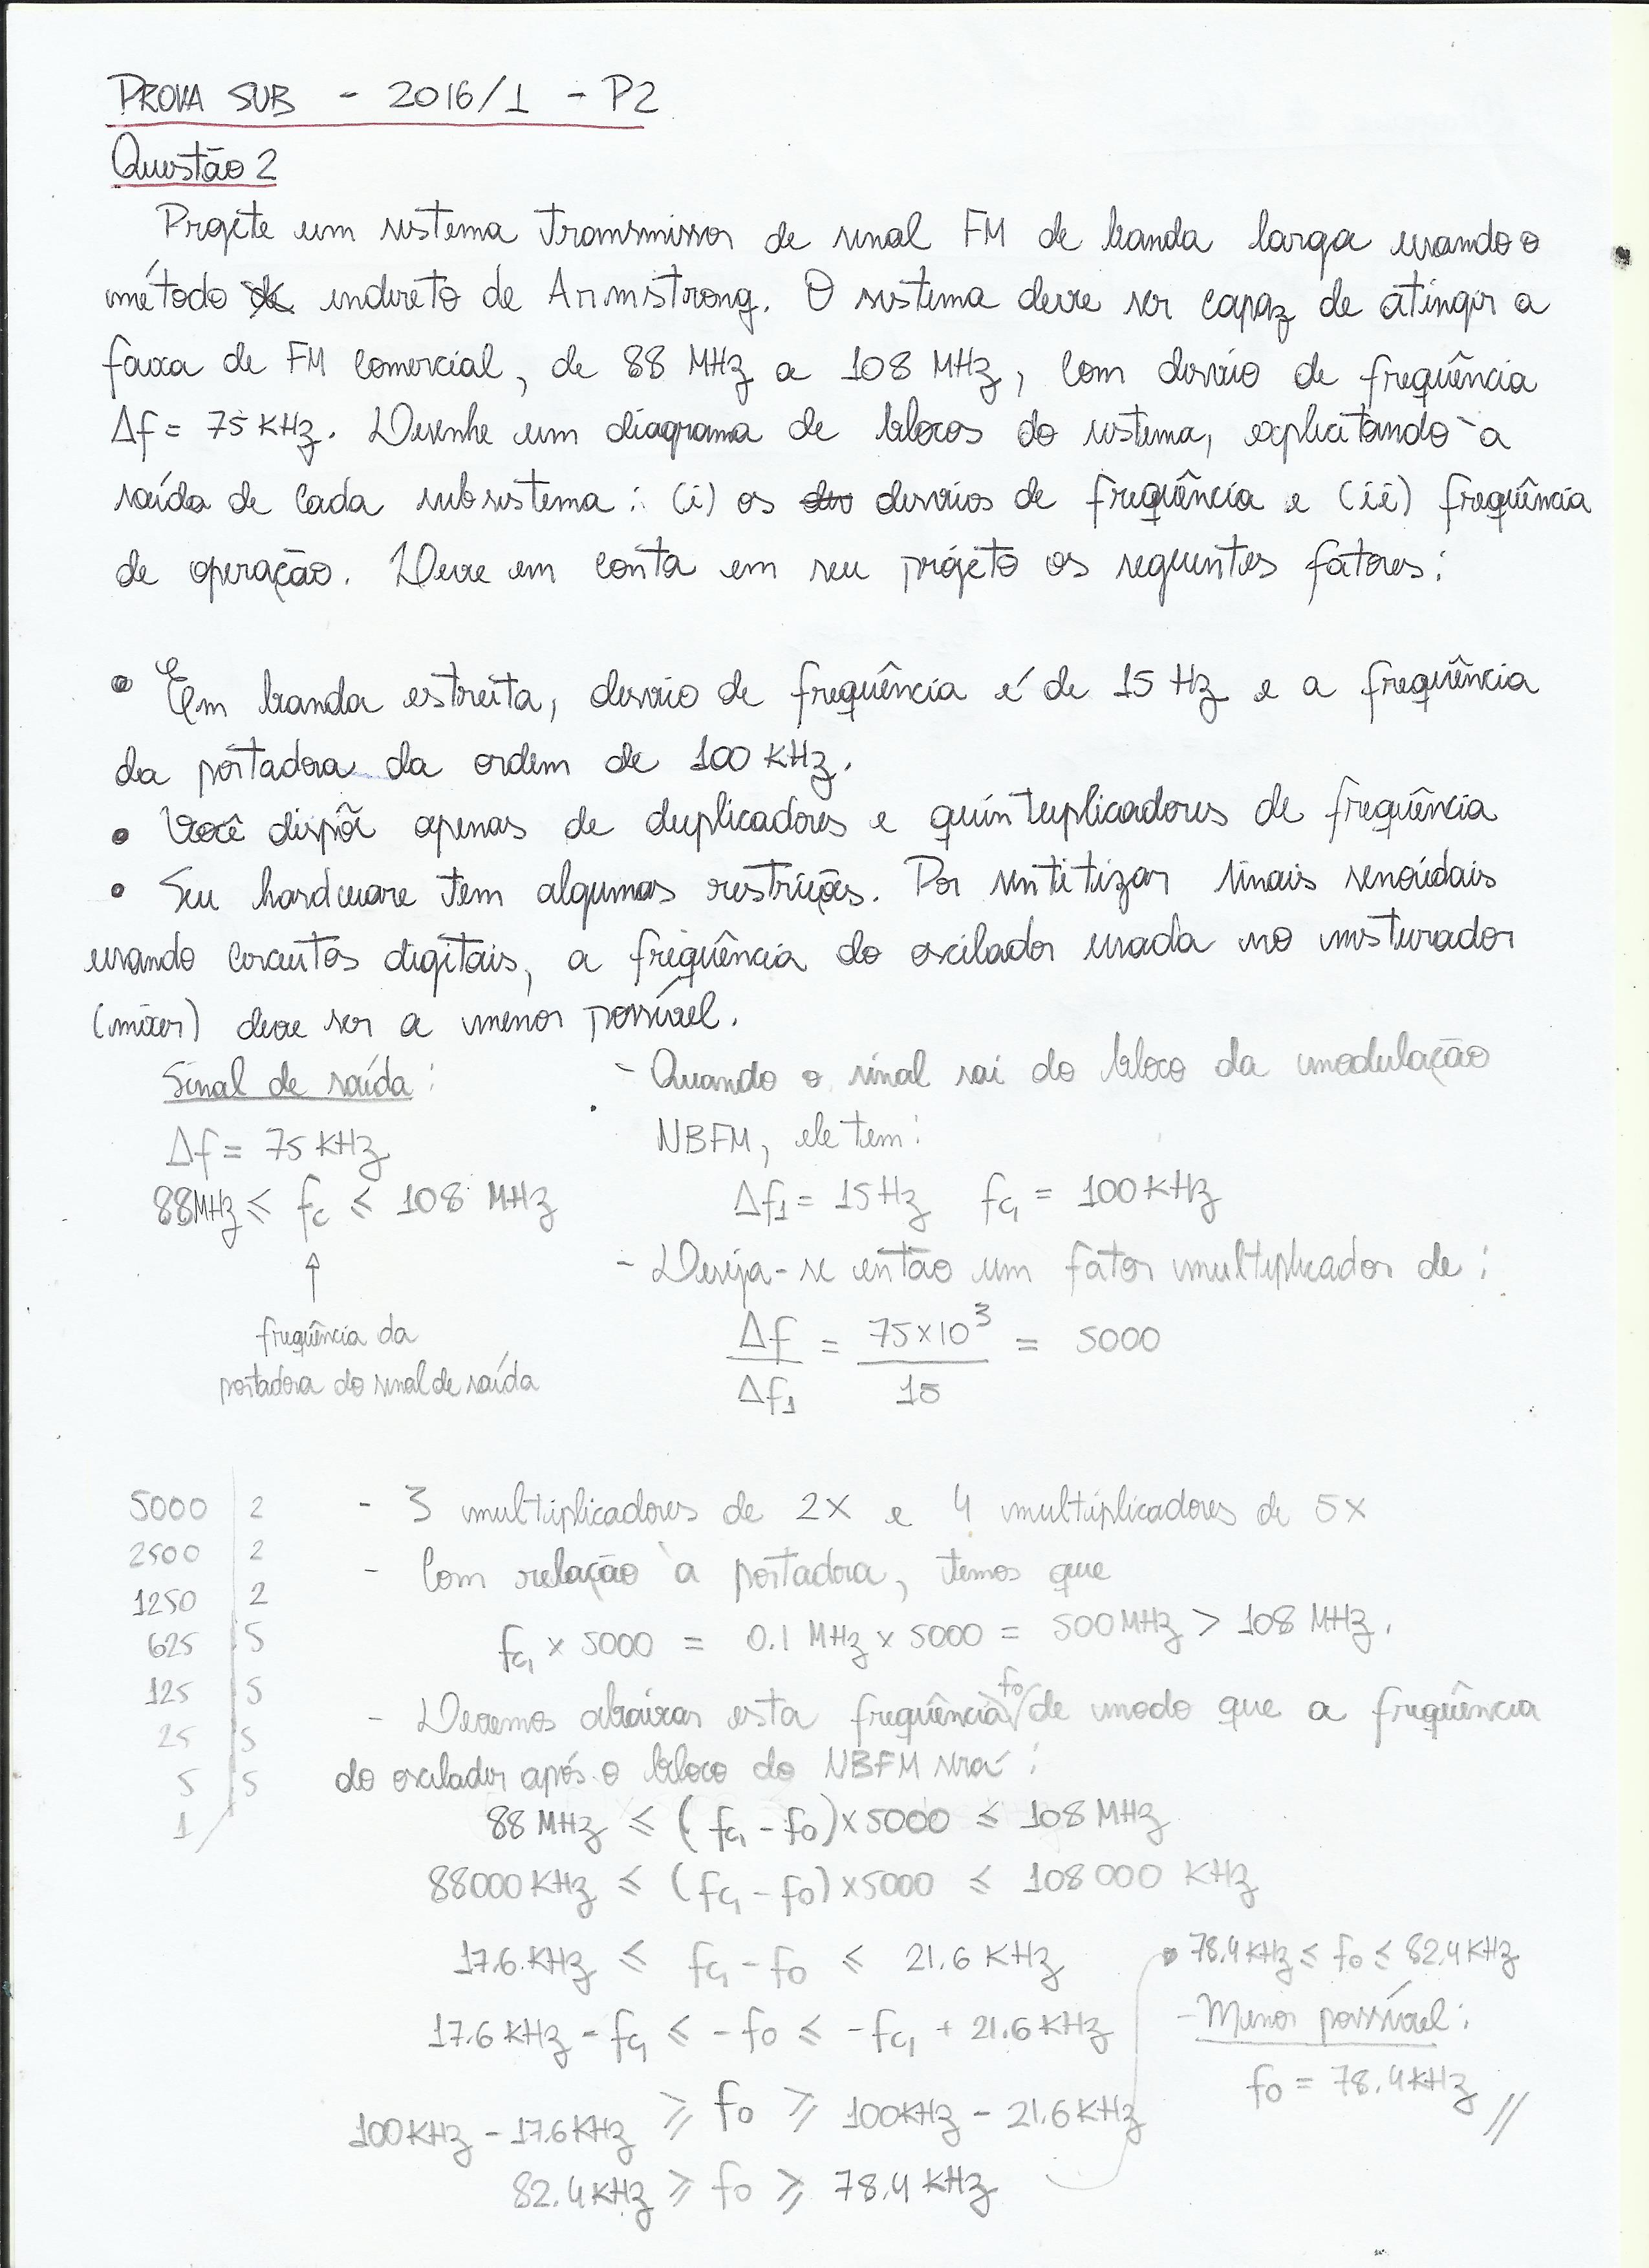 PROVA SUB - 2016/1 - P2
Questão 2
Projete um sistema transmissor de sinal FM de banda larga usando o
método de indireto de Armstrong. O sistema deve ser capaz de atingir a
faixa de FM comercial, de 88 MHz a 108 MHz, com desvio de freqüência
Δf = 75 KHz. Desenhe um diagrama de blocos do sistema, explicitando à
saída de cada subsistema: (i) os desvios de freqüência e (ii) freqüência
de operação. Leve em conta em seu projeto os seguintes fatores:
• Em banda estreita, desvio de freqüência é de 15 Hz e a freqüência
da portadora da ordem de 100 KHz.
• Você dispõe apenas de duplicadores e quintuplicadores de freqüência
• Seu hardware tem algumas restrições. Por sintitizar sinais senoidais
usando circuitos digitais, a freqüência do oscilador usada no misturador
(mixer) deve ser a menor possível.
Sinal de saída:
Δf = 75 KHz
88MHz ≤ fc ≤ 108 MHz
↑
freqüência da
portadora do sinal de saída
- Quando o sinal sai do bloco da modulação
NBFM, ele tem:
Δf1 = 15Hz fc1 = 100KHz
- Deseja-se então um fator multiplicador de:
Δf/Δf1 = 75x10³/15 = 5000
5000 | 2
2500 | 2
1250 | 2
625 | 5
125 | 5
25 | 5
5 | 5
1
- 3 multiplicadores de 2X e 4 multiplicadores de 5X
- Com relação à portadora, temos que
fc1 x 5000 = 0.1 MHz x 5000 = 500MHz > 108 MHz.
- Devemos abaixar esta freqüência fo de modo que a freqüência
do oscilador após o bloco do NBFM será:
88 MHz ≤ (fc1 - fo)x5000 ≤ 108 MHz
88000 KHz ≤ (fc1 - fo)x5000 ≤ 108000 KHz
17.6 KHz ≤ fc1 - fo ≤ 21.6 KHz
17.6 KHz - fc1 ≤ -fo ≤ -fc1 + 21.6 KHz
100KHz - 17.6KHz ≥ fo ≥ 100KHz - 21.6KHz
82.4KHz ≥ fo ≥ 78.4 KHz
• 78.4KHz ≤ fo ≤ 82.4KHz
- Menor possível:
fo = 78.4KHz //